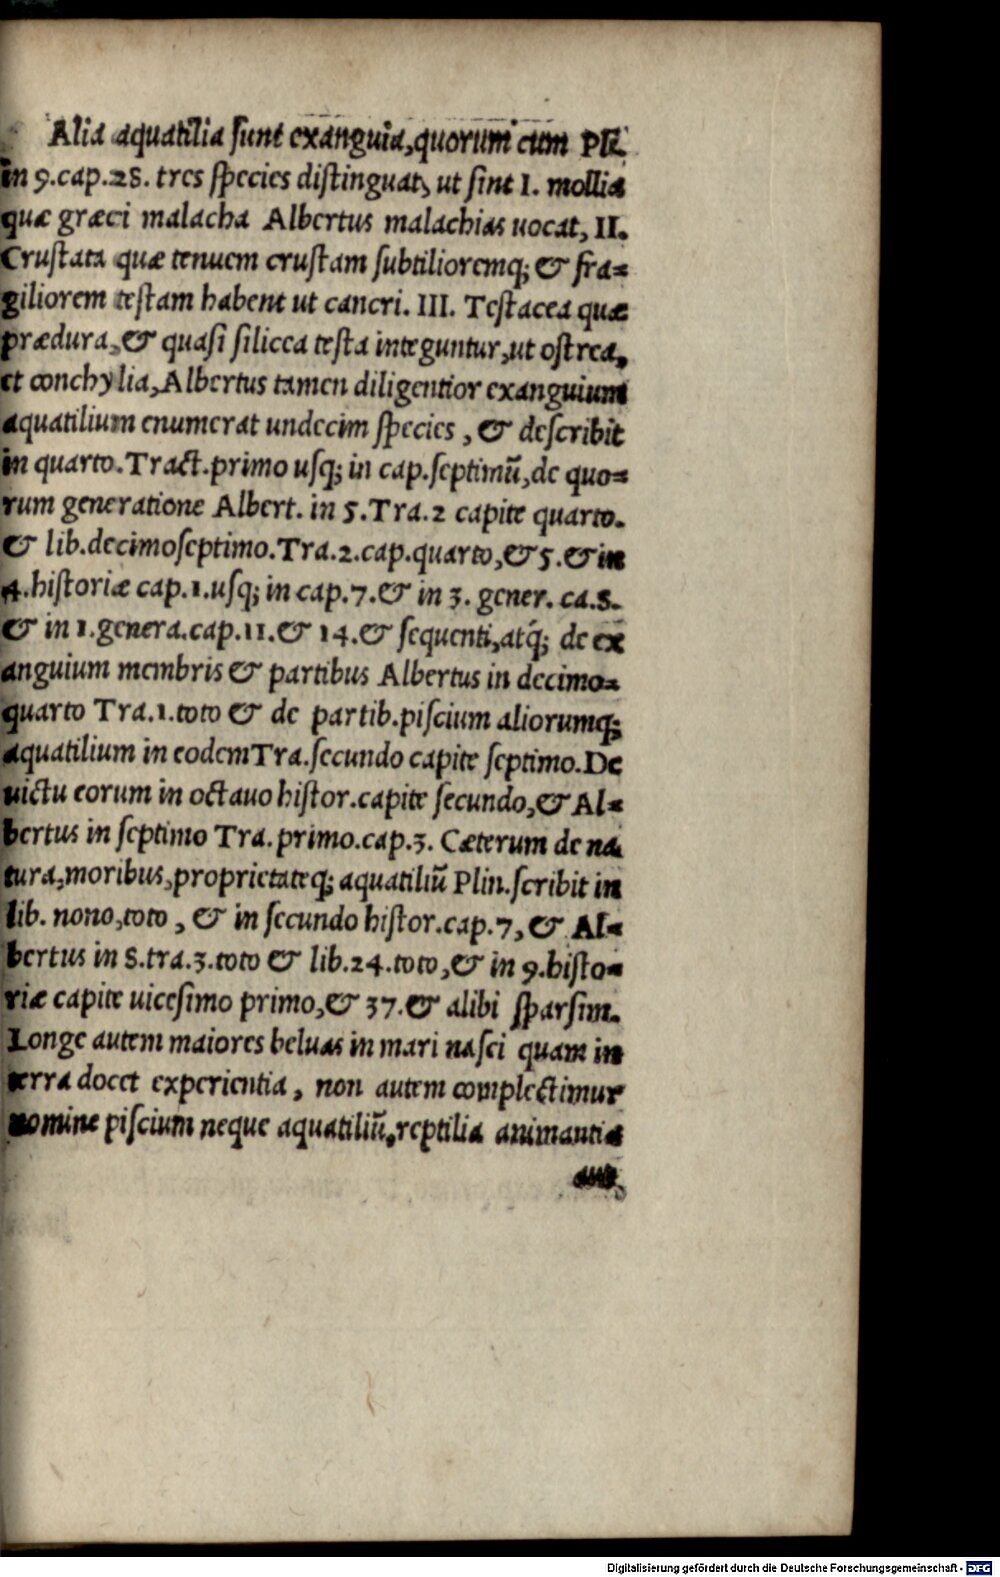 Alia aquatilia sunt exanguia,quorum cum Pli
in 9.cap.28. tres species distinguat, ut sint I. mollia
quæ græci malacha Albertus malachias uocat, II.
Crustata quæ tenuem crustam subtilioremq; & fra=
giliorem testam habent ut cancri. III. Testacea quæ
prædura,& quasi silicea testa integuntur,ut ostrea,
et conchylia,Albertus tamen diligentior exanguium
aquatilium enumerat undecim species , & describit
in quarto.Tract.primo usq; in cap.septimū,de quo=
rum generatione Albert. in 5.Tra.2 capite quarto.
& lib.decimoseptimo.Tra.2.cap.quarto,& 5.& in
4.historiæ cap.1.usq; in cap.7.& in 3. gener. ca.8.
& in 1.genera.cap.11.& 14.& sequenti,atq́; de ex
anguium membris & partibus Albertus in decimo=
quarto Tra.1.toto & de partib.piscium aliorumq;
aquatilium in eodem Tra.secundo capite septimo.De
uictu eorum in octauo histor.capite secundo,& Al=
bertus in septimo Tra.primo.cap.3. Cæterum de na
tura,moribus,proprietateq; aquatiliū Plin.scribit in
lib. nono,toto , & in secundo histor.cap.7, & Al=
bertus in 8.tra.3.toto & lib.24.toto,& in 9.histo=
riæ capite uicesimo primo,& 37.& alibi sparsim.
Longe autem maiores beluas in mari nasci quam in
terra docet experientia , non autem complectimur
nomine piscium neque aquatiliū,reptilia animantia
Digitalisierung gefördert durch die Deutsche Forschungsgemeinschaft - DFG